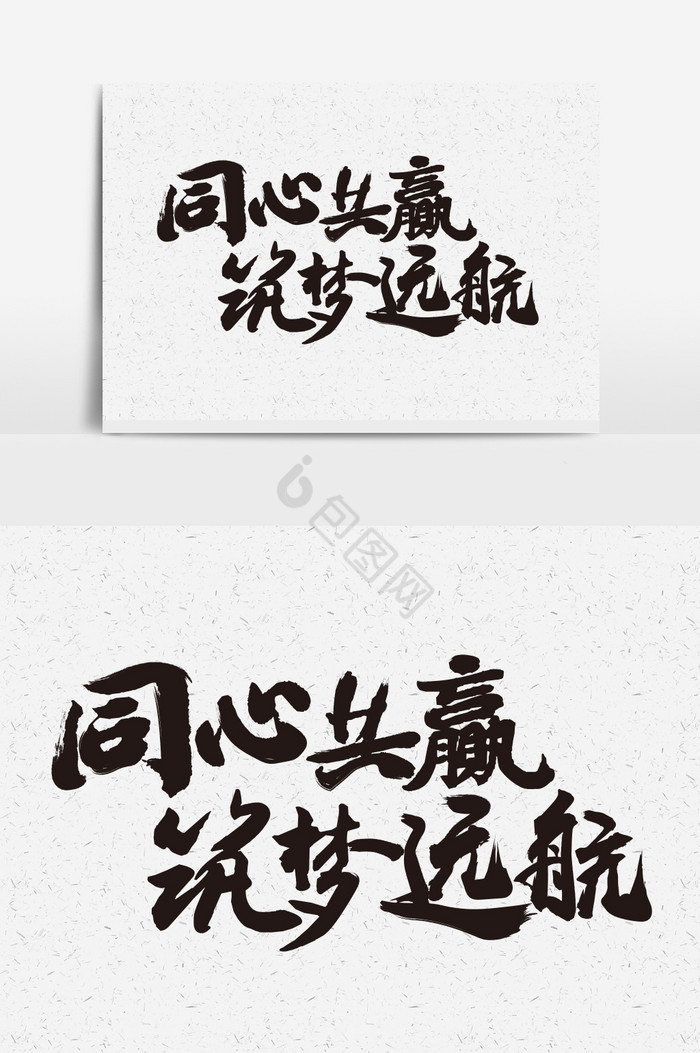 同心共赢
筑梦远航
包图网
同心共赢
筑梦远航